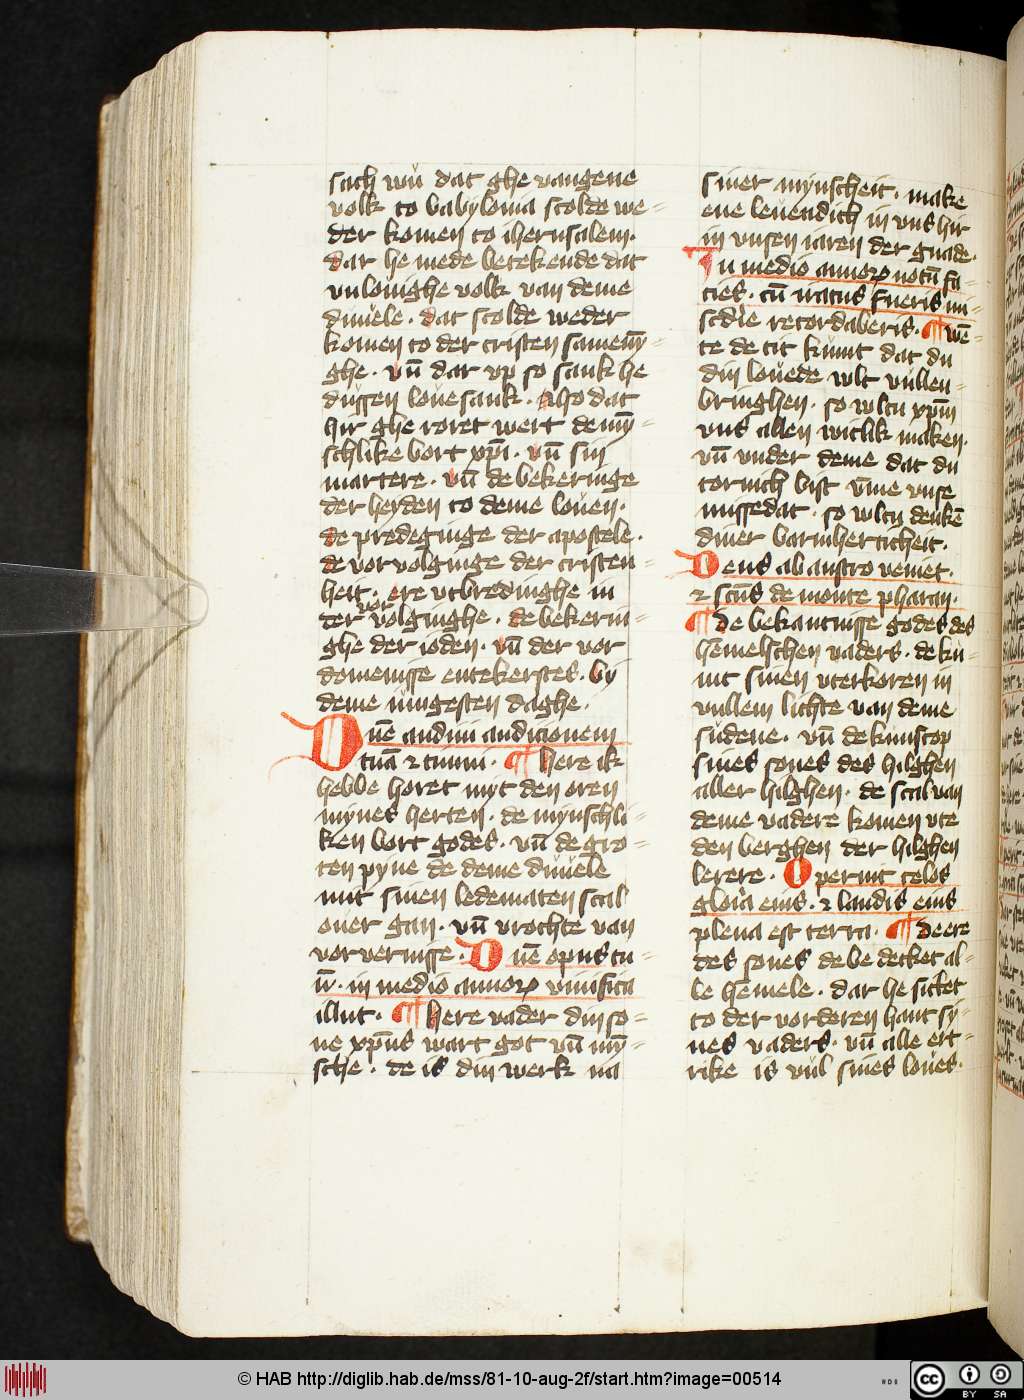 sach wů dat ghe vangene
volk to babylonia scolde we=
der komen to iherusalem.
dar he mede betekende dat
vnlouighe volk van deme
duuele. dat scolde weder
komen to der cristen samenÿ=
ghe. vn̄ dar vp so sank he
dussen louesank. also dat
hir ghe roret wert de mÿ=
schlike bort xp̄i. vn̄ sin
martere. vn̄ de bekeringe
der heyden to deme louen.
de predeginge der apostele.
de vorvolginge der cristen=
heit. ere vtbredinghe in
der vor volginghe. de bekerin=
ghe der ioden. vn̄ der vor
domenisse entekerstes. bi
deme iungesten daghe.
Dn̄e audiui audicionem
tuā ⁊ timui. ¶ here ik
hebbe horet myt den oren
mynes herten. de mynschli=
ken bort godes. vn̄ de gro=
ten pyne de deme duuele
mit sinen ledematen scal
ouer gan. vn̄ vrochte van
vorvernisse. Dn̄e opus tu=
ū. in medio annoꝝ viuifica
illut. ¶ here vader din so=
ne xp̄us wart got vn̄ mÿ=
sche. de is din werk na
siner mynscheit. make
ene leuendich in vns hir
in vnsen iaren der gnade.
In medio annoꝝ notū fa=
cies. cū iratus fueris mi=
scd̄ie recordaberis. ¶ wē=
te de tit kumt dat du
din louede wlt vullen=
bringhen. so wltu xp̄m
vns allen witlik maken.
vn̄ vnder deme dat du
tornich bist v̄me vnse
missedat. so wltu denkē
diner barmherticheit.
Deus ab austro veniet.
⁊ scūs de monte pharan.
¶ de bekantnisse godes des
hemelschen vaders. de ku=
mt sinen vterkoren in
vullem lichte van deme
sudene. vn̄ de kumstop
sines sones des hilghen
aller hilghen. de scal van
deme vadere komen vte
den berghen der hilghen
lerere. Operuit celos
gloria eius. ⁊ laudis eius
plena est terra. ¶ de ere
des sones de be decket al=
le hemele. dar he sittet
to der vorderen hant sy=
nes vaders. vn̄ alle ert=
rike is vul sines loues.
© HAB http://diglib.hab.de/mss/81-10-aug-2f/start.htm?image=00514
cc BY SA